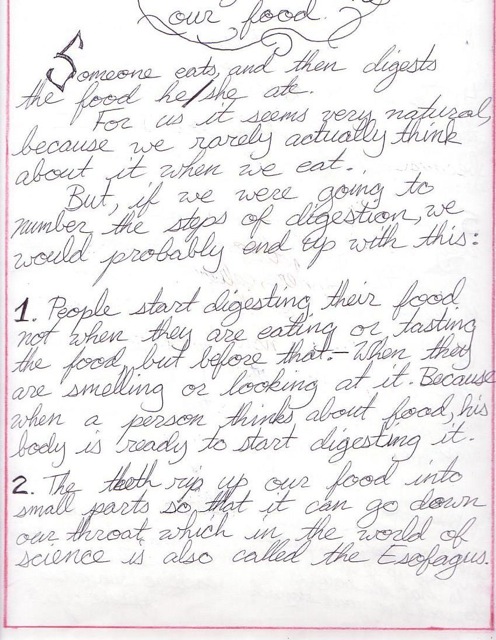 our food.
Someone eats, and then digests
the food he/she ate.
For us it seems very natural,
because we rarely actually think
about it when we eat.
But, if we were going to
number the steps of digestion, we
would probably end up with this:
1. People start digesting their food
not when they are eating or tasting
the food, but before that. - When they
are smelling or looking at it. Because
when a person thinks about food, his
body is ready to start digesting it.
2. The teeth rip up our food into
small parts so that it can go down
our throat which in the world of
science is also called the Esofagus.